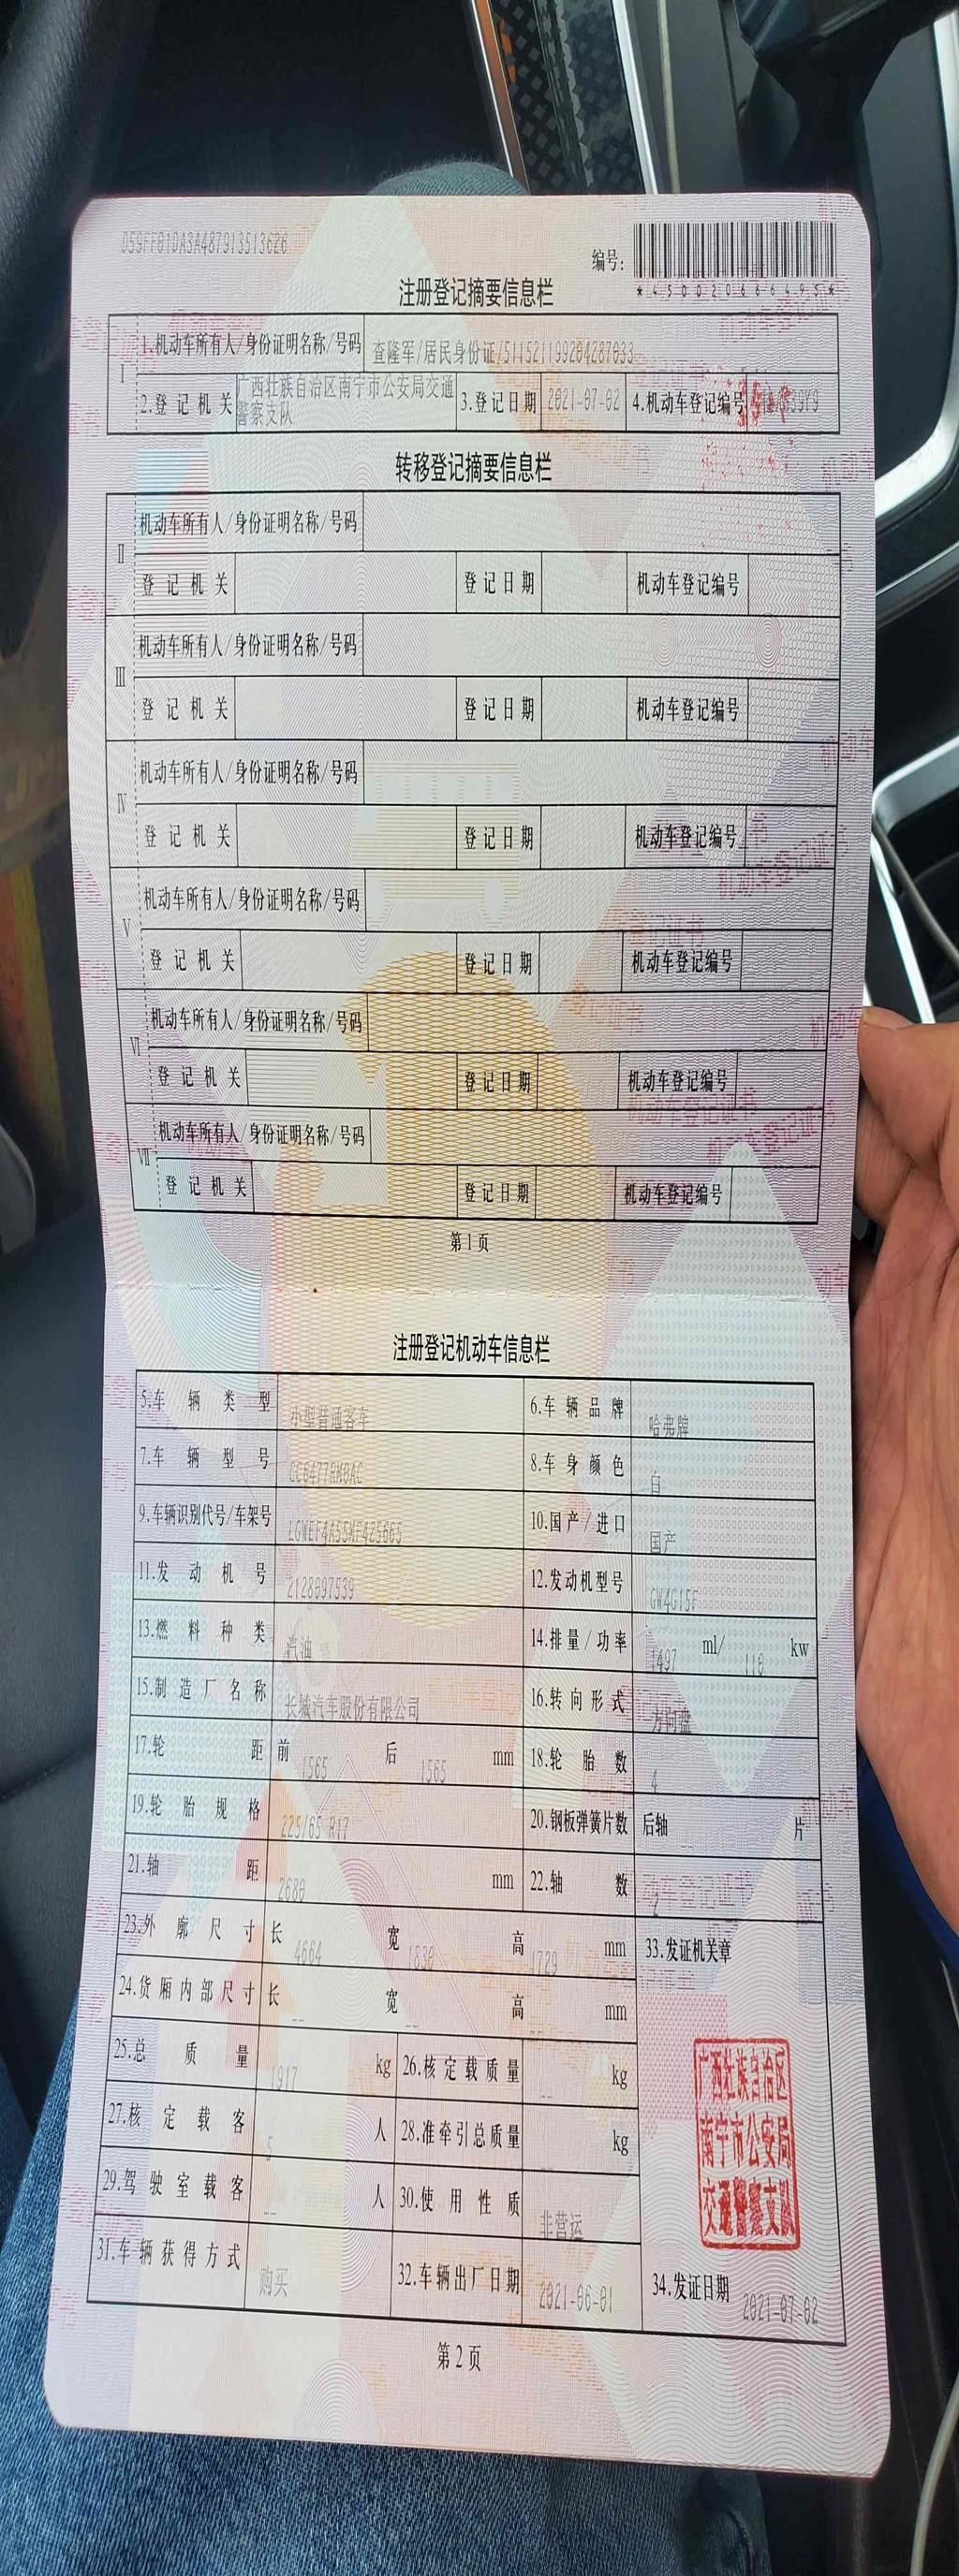 D59FF01DA3A487913513626
编号:
*450020666495*
注册登记摘要信息栏
I
1.机动车所有人/身份证明名称/号码 查隆军/居民身份证/511521199204287033
2.登记机关 广西壮族自治区南宁市公安局交通警察支队 3.登记日期 2021-07-02 4.机动车登记编号
转移登记摘要信息栏
II
机动车所有人/身份证明名称/号码
登记机关 登记日期 机动车登记编号
III
机动车所有人/身份证明名称/号码
登记机关 登记日期 机动车登记编号
IV
机动车所有人/身份证明名称/号码
登记机关 登记日期 机动车登记编号
V
机动车所有人/身份证明名称/号码
登记机关 登记日期 机动车登记编号
VI
机动车所有人/身份证明名称/号码
登记机关 登记日期 机动车登记编号
VII
机动车所有人/身份证明名称/号码
登记机关 登记日期 机动车登记编号
第1页
注册登记机动车信息栏
5.车辆类型 小型普通客车 6.车辆品牌 哈弗牌
7.车辆型号 CC6477RM0AC 8.车身颜色 白
9.车辆识别代号/车架号 LGWEF4A55MF425665 10.国产/进口 国产
11.发动机号 2128097539 12.发动机型号 GW4G15F
13.燃料种类 汽油 14.排量/功率 1497 ml/ 110 kw
15.制造厂名称 长城汽车股份有限公司 16.转向形式 方向盘
17.轮距 前 1565 后 1565 mm 18.轮胎数 4
19.轮胎规格 225/65 R17 20.钢板弹簧片数 后轴 -- 片
21.轴距 2680 mm 22.轴数 2
23.外廓尺寸 长 4664 宽 1830 高 1729 mm 33.发证机关章
24.货厢内部尺寸 长 -- 宽 -- 高 -- mm
25.总质量 1917 kg 26.核定载质量 -- kg
27.核定载客 5 人 28.准牵引总质量 -- kg
广西壮族自治区
南宁市公安局
交通警察支队
29.驾驶室载客 -- 人 30.使用性质 非营运
31.车辆获得方式 购买 32.车辆出厂日期 2021-06-01 34.发证日期 2021-07-02
第2页